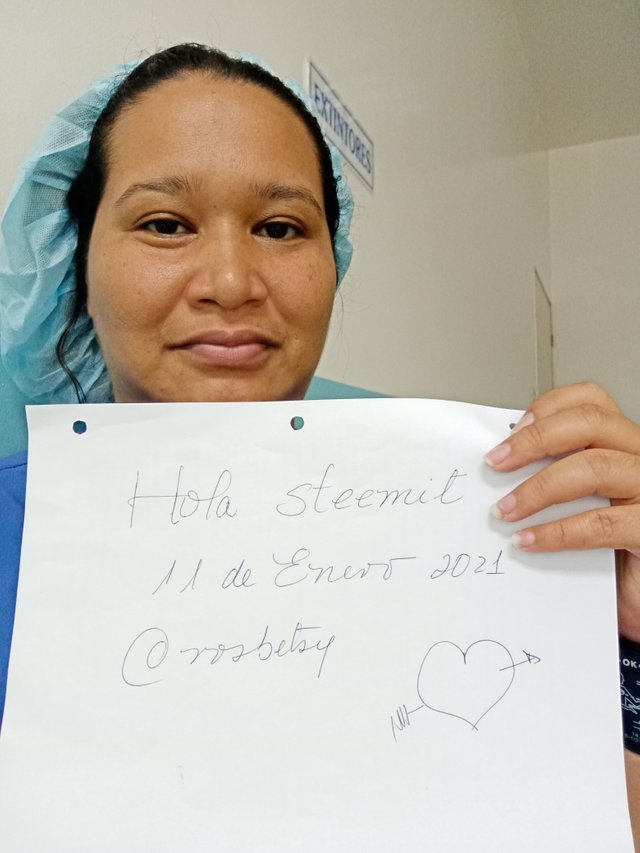 EXTINTORES
Hola steemit
11 de Enero 2021
@rosbetsy
OK